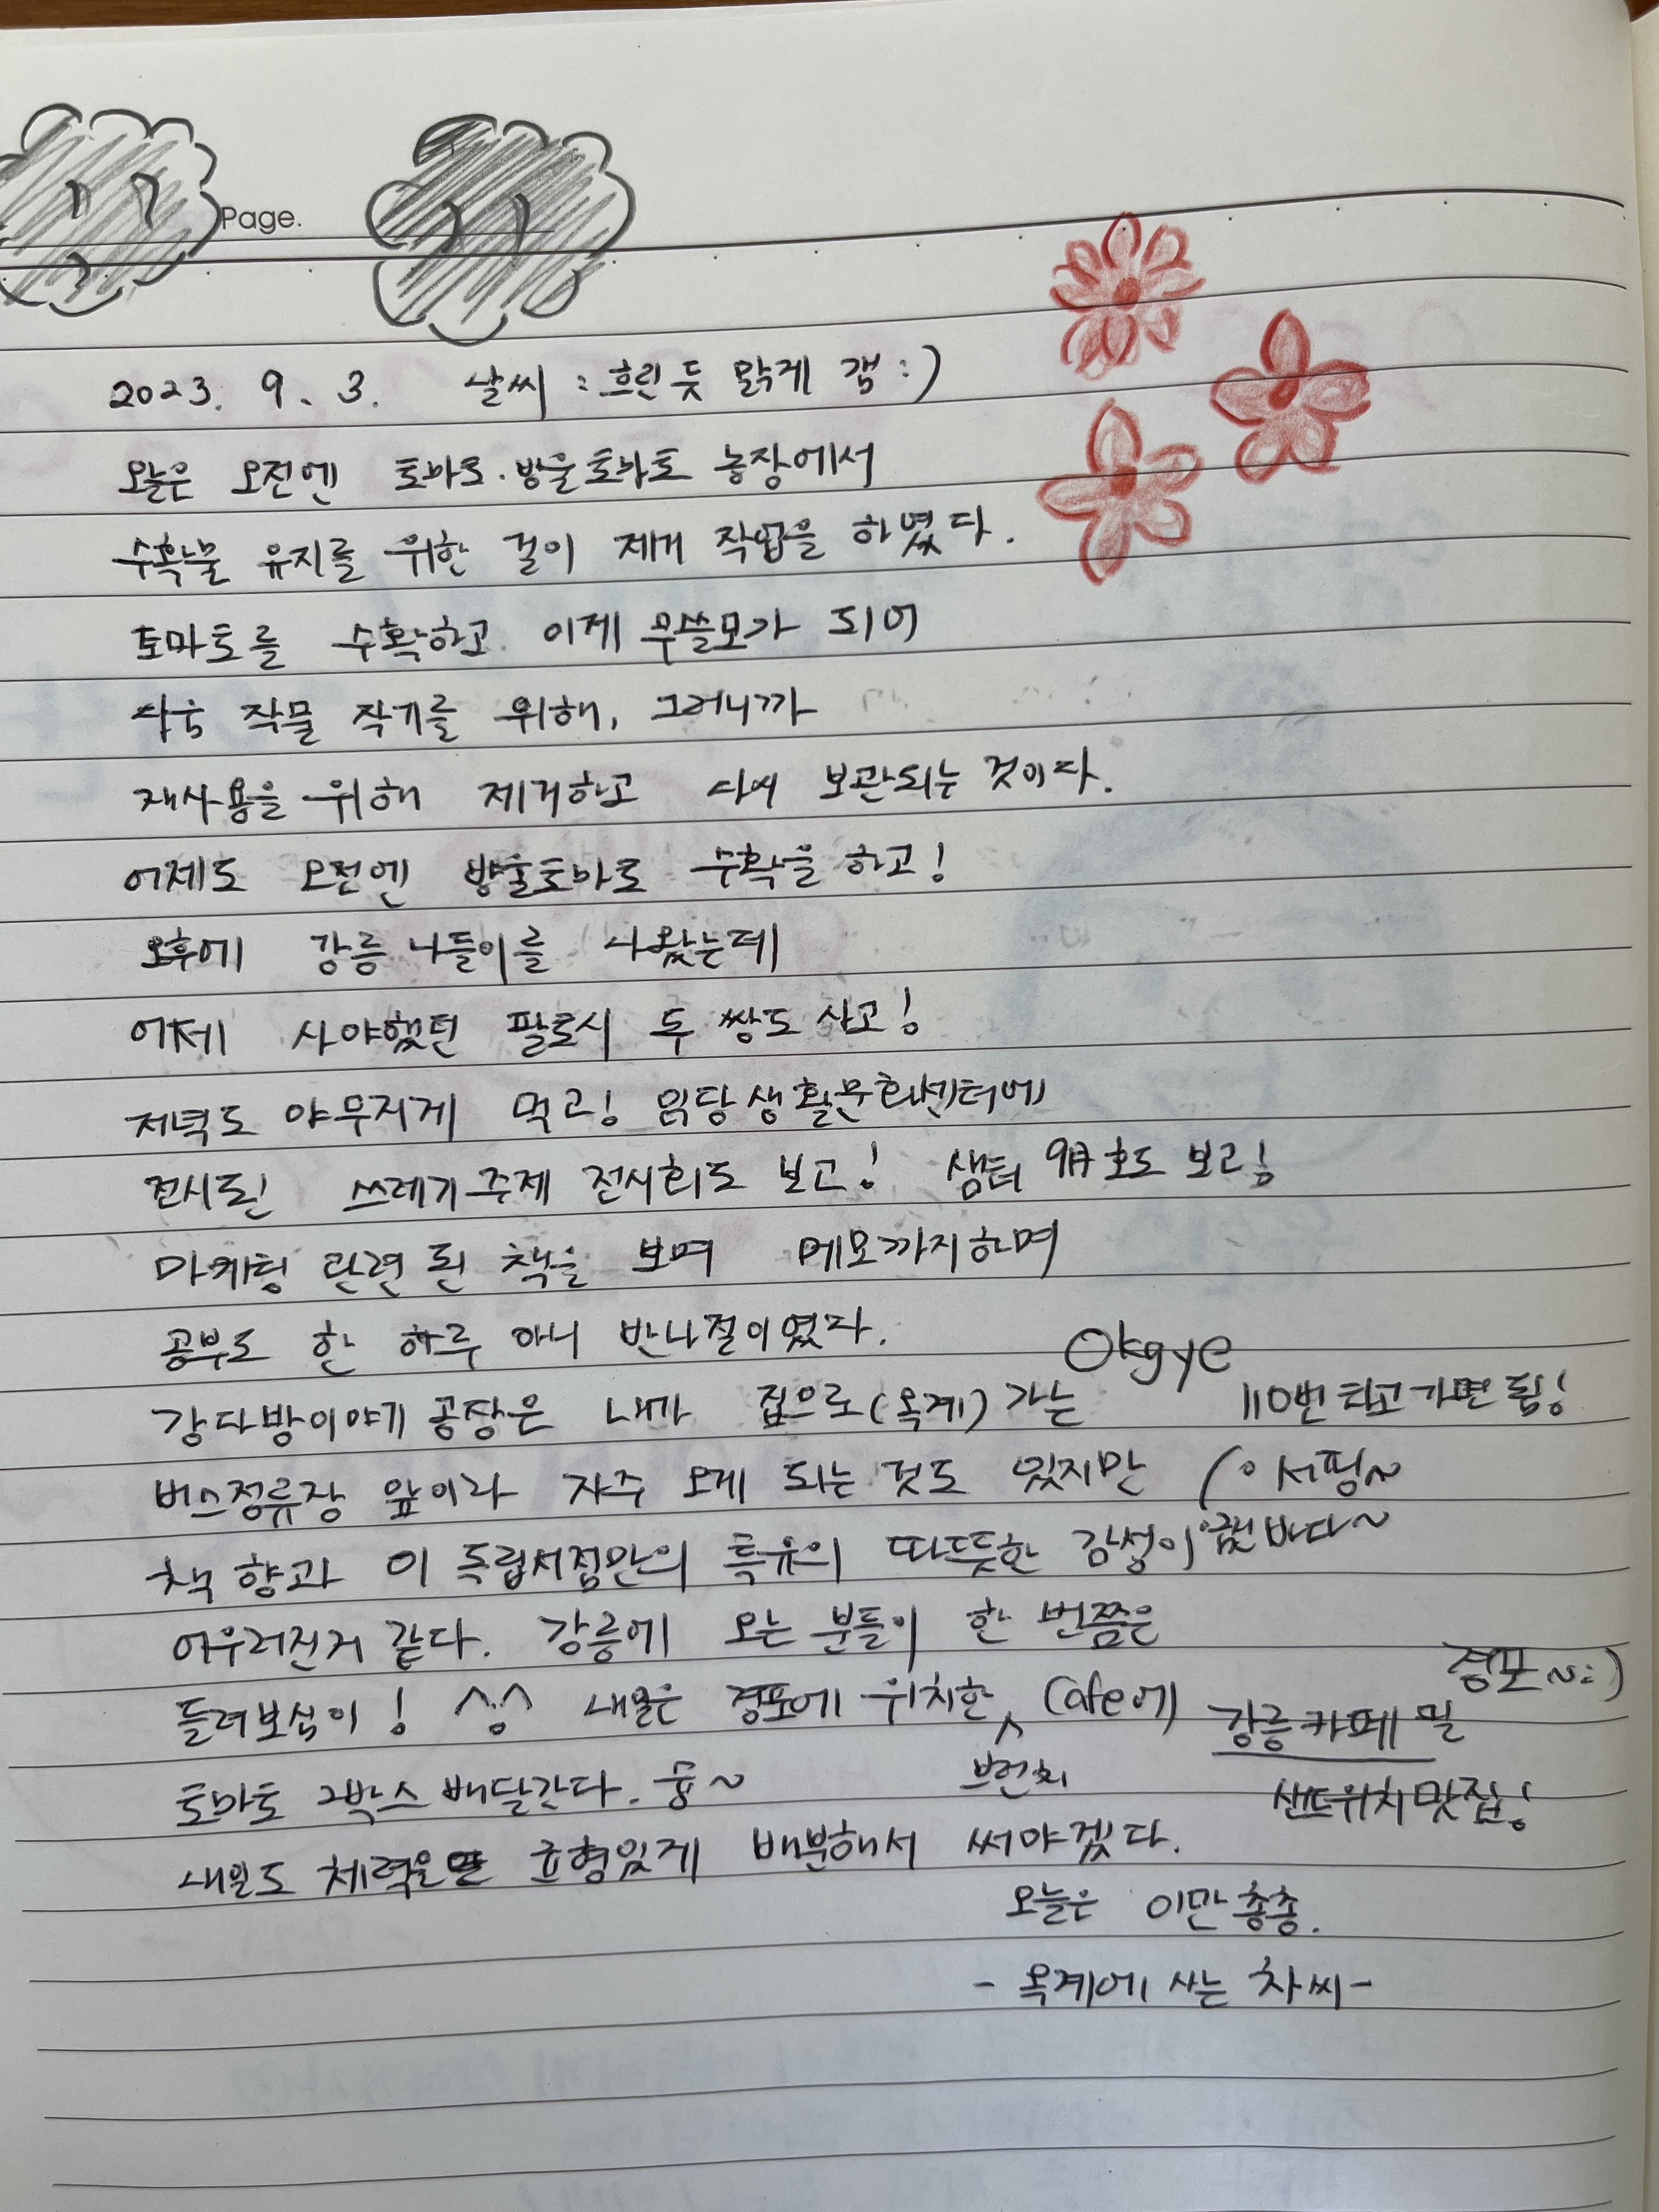 Page.
2023. 9. 3. 날씨 : 흐린 듯 맑게 갬 :)
오늘은 오전엔 토마토·방울토마토 농장에서
수확물 유지를 위한 걸이 제거 작업을 하였다.
토마토를 수확하고 이제 무쓸모가 되어
다음 작물 작기를 위해, 그러니까
재사용을 위해 제거하고 다시 보관되는 것이다.
어제도 오전엔 방울토마토 수확을 하고!
오후에 강릉 나들이를 나왔는데
어제 사야했던 팔토시 두 쌍도 사고!
저녁도 야무지게 먹고! 임당생활문화센터에
전시된 쓰레기 주제 전시회도 보고! 샘터 9月호도 보고!
마케팅 관련 된 책을 보며 메모까지하며
공부도 한 하루 아니 반나절이였다.
Okgye
강다방이야기 공장은 내가 집으로(옥계) 가는 110번 타고 가면 됨!
버스정류장 앞이라 자주 오게 되는 것도 있지만 ( ° 서핑~
책 향과 이 독립서점만의 특유의 따뜻한 감성이 °금진바다~
어우러진거 같다. 강릉에 오는 분들이 한 번쯤은
들려보십이! ^.^ 내일은 경포에 위치한 브런치 Cafe에 강릉카페 밀 경포~:)
토마토 2박스 배달간다. 훙~ 샌드위치 맛집!
내일도 체력을 균형있게 배분해서 써야겠다.
오늘은 이만 총총.
- 옥계에 사는 차씨 -